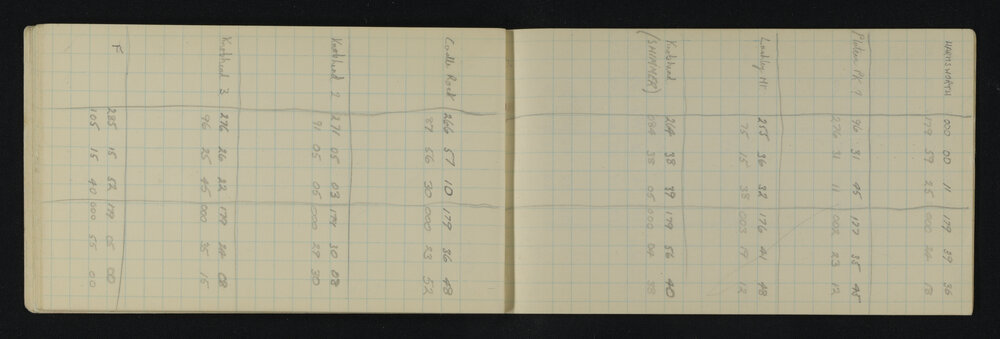 000 00 11 179 39 36
179 57 25 000 24 13
Pk 1 96 31 45 177 35 45
276 31 11 002 23 12
Lashly Mt. 255 36 32 176 41 48
75 15 38 003 17 12
Knobhead 264 38 39 179 56 40
(SHIMMER) 084 38 05 000 04 38
Castle Rock 266 57 10 179 36 48
87 56 30 000 23 52
Knobhead 2 271 05 03 179 30 08
91 05 05 000 29 30
Knobhead 3 276 26 22 179 24 08
96 25 45 000 35 15
F 285 15 52 179 05 00
105 15 40 000 55 00